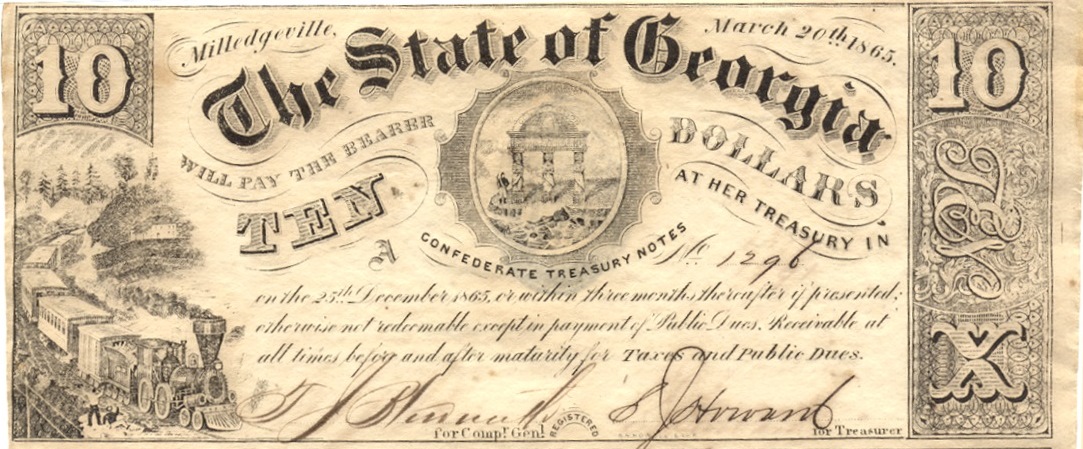 10
Milledgeville,
March 20th 1865.
10
The State of Georgia
WILL PAY THE BEARER
TEN
DOLLARS
AT HER TREASURY IN
CONFEDERATE TREASURY NOTES
A
No 1296
on the 25th December 1865, or within three months thereafter if presented;
otherwise not redeemable except in payment of Public Dues. Receivable at
all times before and after maturity for Taxes and Public Dues.
S J Howard
for Compr. Genl.
REGISTERED
for Treasurer
X